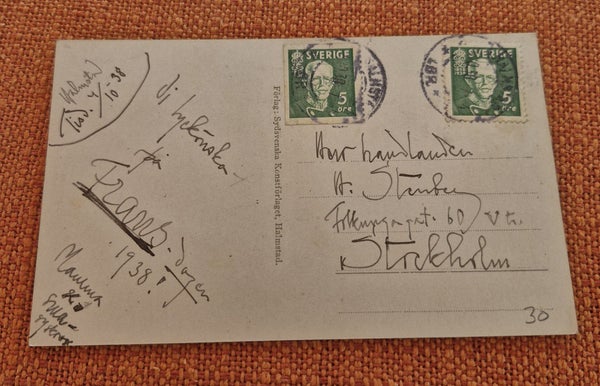 Halmstad
tisd. 4/10 38
Vi lyckönska
för
Frans-dagen
1938!
Hanna
SVERIGE
5
öre
SVERIGE
5
öre
Förlag: Sydsvenska Konstförlaget, Halmstad.
Herr handlanden
H. Stenberg
Folkungagat. 60 V tr.
Stockholm
30